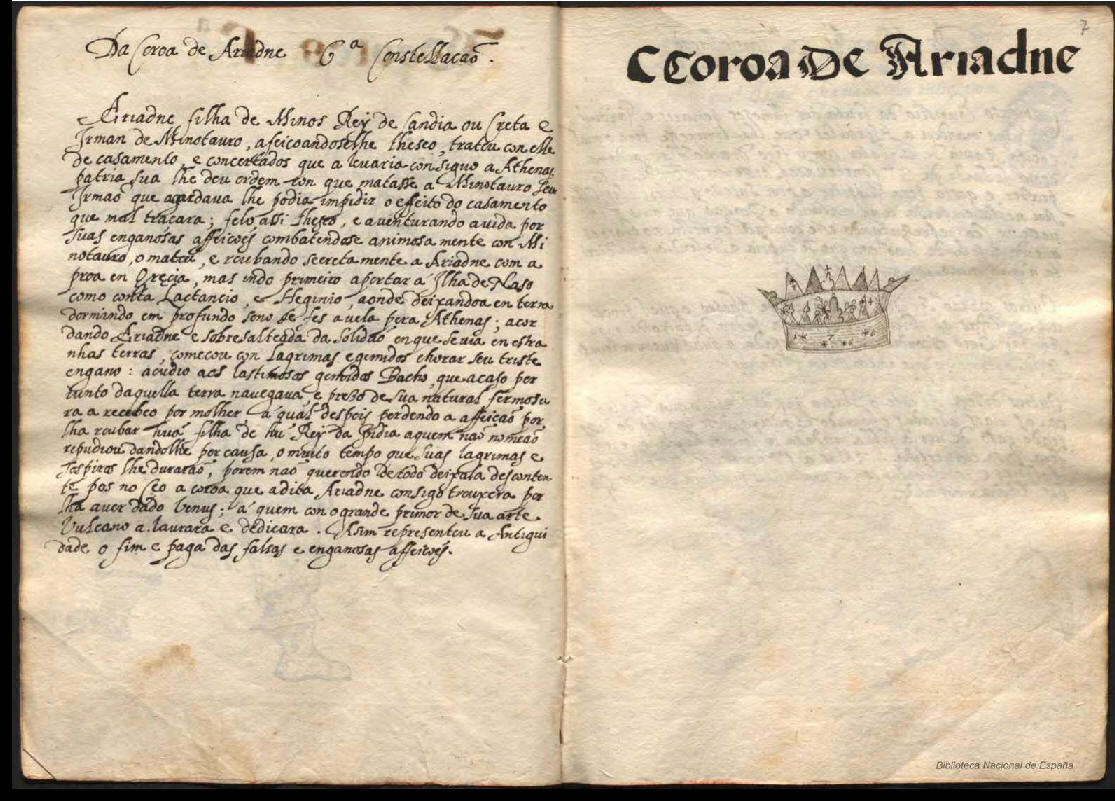 Da Coroa de Ariadne 6ª Constellacaõ.
Ariadne filha de Minos Rey de Candia ou Creta e
Irman de Minotauro, afeicoandoselhe theseo, tratou con elle
de casamento, e concertados que a levaria consiguo a Athenas
patria sua lhe deu ordem con que matasse a Minotauro seu
Irmaõ que agardava lhe podia impidir o effeito do casamento
que mal tracara; felo assi theseo, e aventurando avida por
suas enganosas affeicoes combatendose animosa mente con Mi
notauro, o matou, e roubando secretamente a Ariadne com a
proa en Grecia, mas indo primeiro aportar a Ilha de Naso
como conta Lactancio, e Heginio, aonde deixandoa en terra
dormindo em profundo sono se fes avela pera Athenas; acor
dando Ariadne e sobresalteada da solidaõ en que se via en estra
nhas terras, comecou con lagrimas e gemidos chorar seu triste
engano: acudio aos lastimosos gemidos Bacho, que acaso por
iunto daquella terra navegava, e preso de sua natural fermosu
ra a recebeo por molher a qual despois perdendo a affeicaõ por
lha roubar huã filha de hu Rey da India aquem naõ nomeaõ
repudiou dandolhe por causa, o muito tempo que suas lagrimas e
sospiros lhe duraraõ; porem naõ querendo de todo deixala desconten
te pos no Ceo a coroa que adita Ariadne consigo trouxera por
lha aver dado Venus; a quem con o grande primor de sua arte
Vulcano a laurara e dedicara. Asim representou a Antigui
dade o fim e paga das falsas e enganosas affeicoẽs.
7
CCoroa De Ariadne
Biblioteca Nacional de España